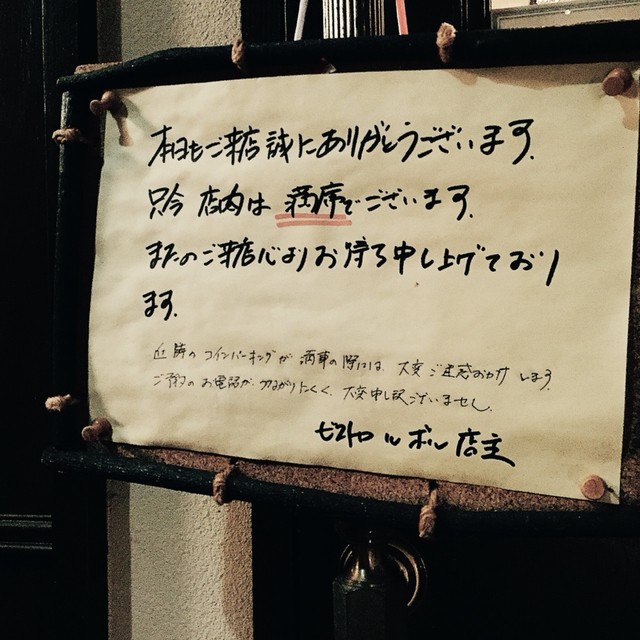 本日もご来店誠にありがとうございます。
只今 店内は 満席でございます。
またのご来店心よりお待ち申し上げており
ます。
近隣のコインパーキングが 満車の際には、大変ご迷惑おかけします。
ご予約のお電話が、つながりにくく、大変申し訳ございません。
ビストロ ル ボル 店主